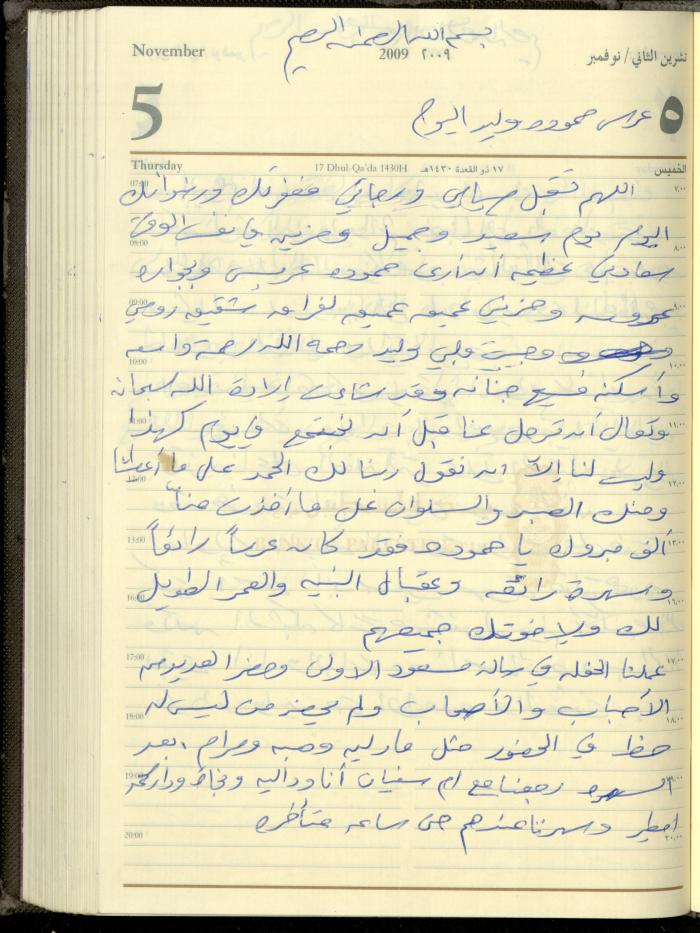 بسم الله الرحمن الرحيم
November
2009 ٢٠٠٩
تشرين الثاني / نوفمبر
5
عرس حموده وليد اليوم
٥
Thursday
17 Dhul-Qa'da 1430H ١٧ ذو القعدة ١٤٣٠هـ
الخميس
اللهم تقبل صيامي ورجائي مغفرتك ورضوانك
اليوم يوم سعيد وجميل وحزين في نفس الوقت
سعادتي عظيمه أن أرى حموده عريس وبجواره
عروسه وحزني عميق عميق لفراق شقيق روحي
وحبيب قلبي وليد رحمة الله رحمة واسعه
وأسكنه فسيح جنانه وقد شاءت إرادة الله سبحانه
وتعالى أن ترحل عنا قبل أن نجتمع في يوم كهذا
وليس لنا إلا ان نقول ربنا لك الحمد على ما أعطيتنا
ومنك الصبر والسلوان على ما أخذت منا
ألف مبروك يا حموده فقد كان عرساً رائعاً
وسهرة رائعه وعقبال البنيه والعمر الطويل
لك ولاخوتك جميعهم
عملنا الحفله في صالة مسعود الاولى وحضر العديد من
الأحباب والأصحاب ولم يحضر من ليس له
حظ في الحضور مثل ماوليه وصبه ومرام . بعد
رجعنا مع ام سفيان أنا وداليه ونجاة
وسهرنا عندهم حتى ساعه متأخره
07:00
٧.٠٠
08:00
٨.٠٠
09:00
٩.٠٠
10:00
١٠.٠٠
11:00
١١.٠٠
12:00
١٢.٠٠
13:00
١٣.٠٠
16:00
١٦.٠٠
17:00
١٧.٠٠
18:00
١٨.٠٠
19:00
١٩.٠٠
20:00
٢٠.٠٠